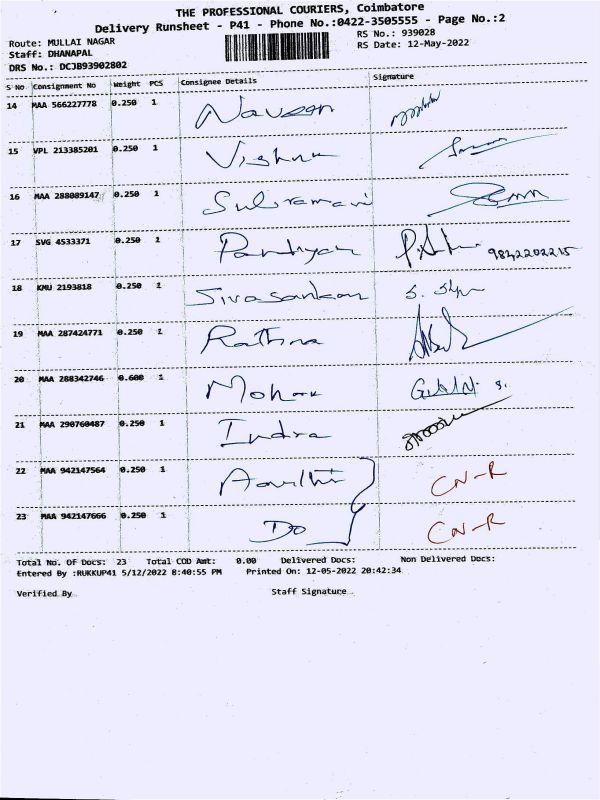 THE PROFESSIONAL COURIERS, Coimbatore
Delivery Runsheet - P41 - Phone No.:0422-3505555 - Page No.:2
Route: MULLAI NAGAR
RS No.: 939028
Staff: DHANAPAL
RS Date: 12-May-2022
DRS No.: DCJB93902802
S No Consignment No Weight PCS Consignee Details Signature
14 MAA 566227778 0.250 1 Naveen
15 VPL 213385201 0.250 1 Vishnu
16 MAA 288089147 0.250 1 Subramani
17 SVG 4533371 0.250 1 Pandiyan 9842202215
18 KMU 2193818 0.250 1 Sivasankar
19 MAA 287424771 0.250 1 Rathna
20 MAA 288342746 0.600 1 Mohan
21 MAA 290760487 0.250 1 Indra
22 MAA 942147564 0.250 1 CN-R
23 MAA 942147666 0.250 1 Do CN-R
Total No. Of Docs: 23 Total COD Amt: 0.00 Delivered Docs: Non Delivered Docs:
Entered By :RUKKUP41 5/12/2022 8:40:55 PM Printed On: 12-05-2022 20:42:34
Verified By Staff Signature